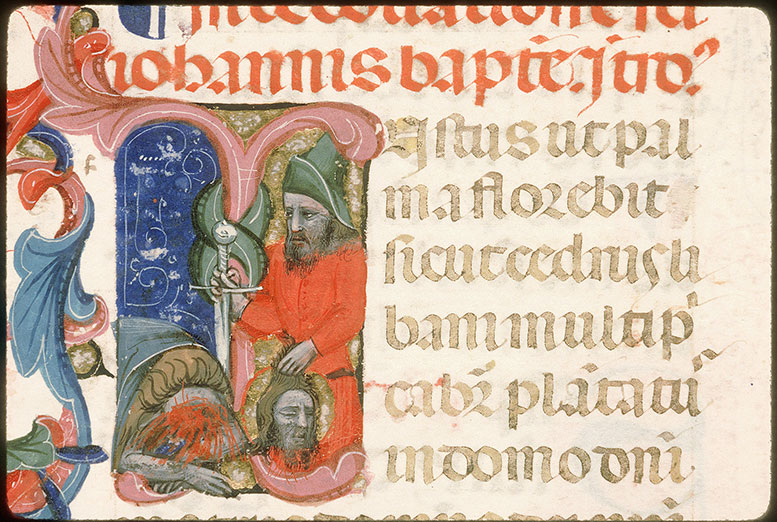 In decollatione sci
iohannis bapte. Itro.
Iustus ut pal
ma florebit
sicut cedrus li
bani multipˡ
cabr̄ plātatū
in domo dn̄i